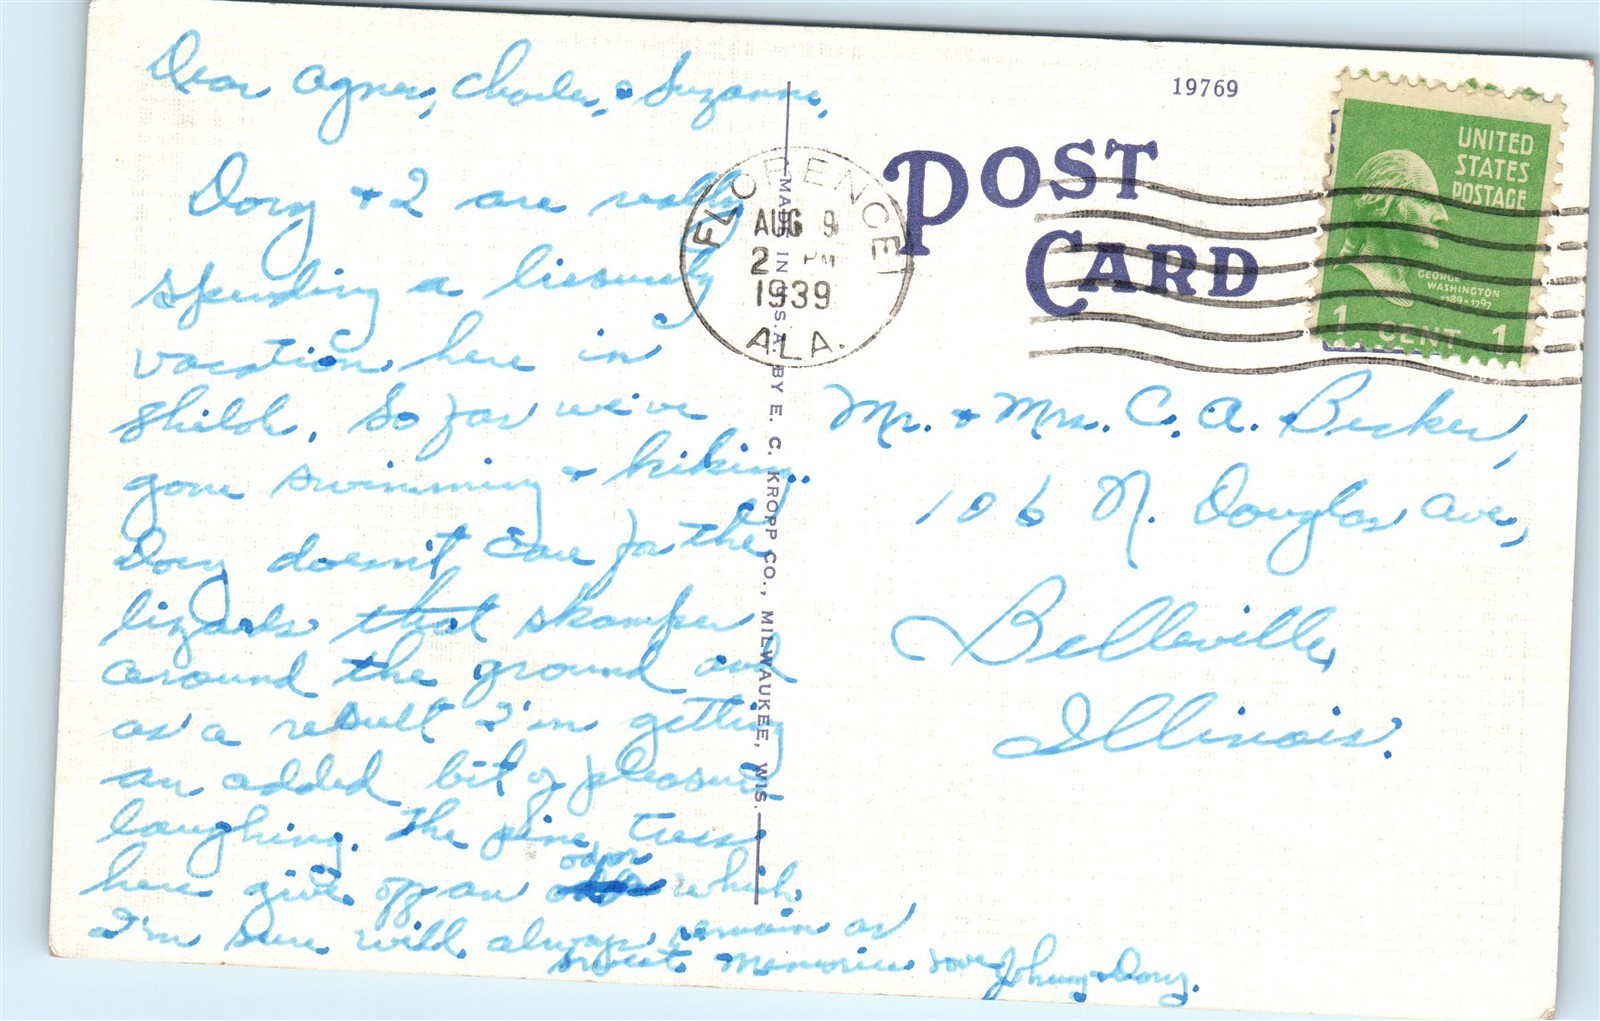 Dear Agnes, Charles, + Suzanne,
Dory + I are really
spending a lissurely
vacation here in
Shiloh. So far we've
gone swimming + hiking.
Dory doesn't care for the
lizards that skamper
around the ground and
as a result I'm getting
an added bit of pleasure
laughing. The pine trees
here give off an odor which
I'm sure will always remain as
sweet memories Love, Johnny + Dory.
19769
POST
CARD
FLORENCE
AUG 9
2 PM
1939
ALA.
MADE IN U.S.A. BY E. C. KROPP CO., MILWAUKEE, WIS.
UNITED
STATES
POSTAGE
GEORGE
WASHINGTON
1789-1797
1 CENT 1
Mr. + Mrs. C. A. Becker,
106 N. Douglas Ave,
Belleville,
Illinois.